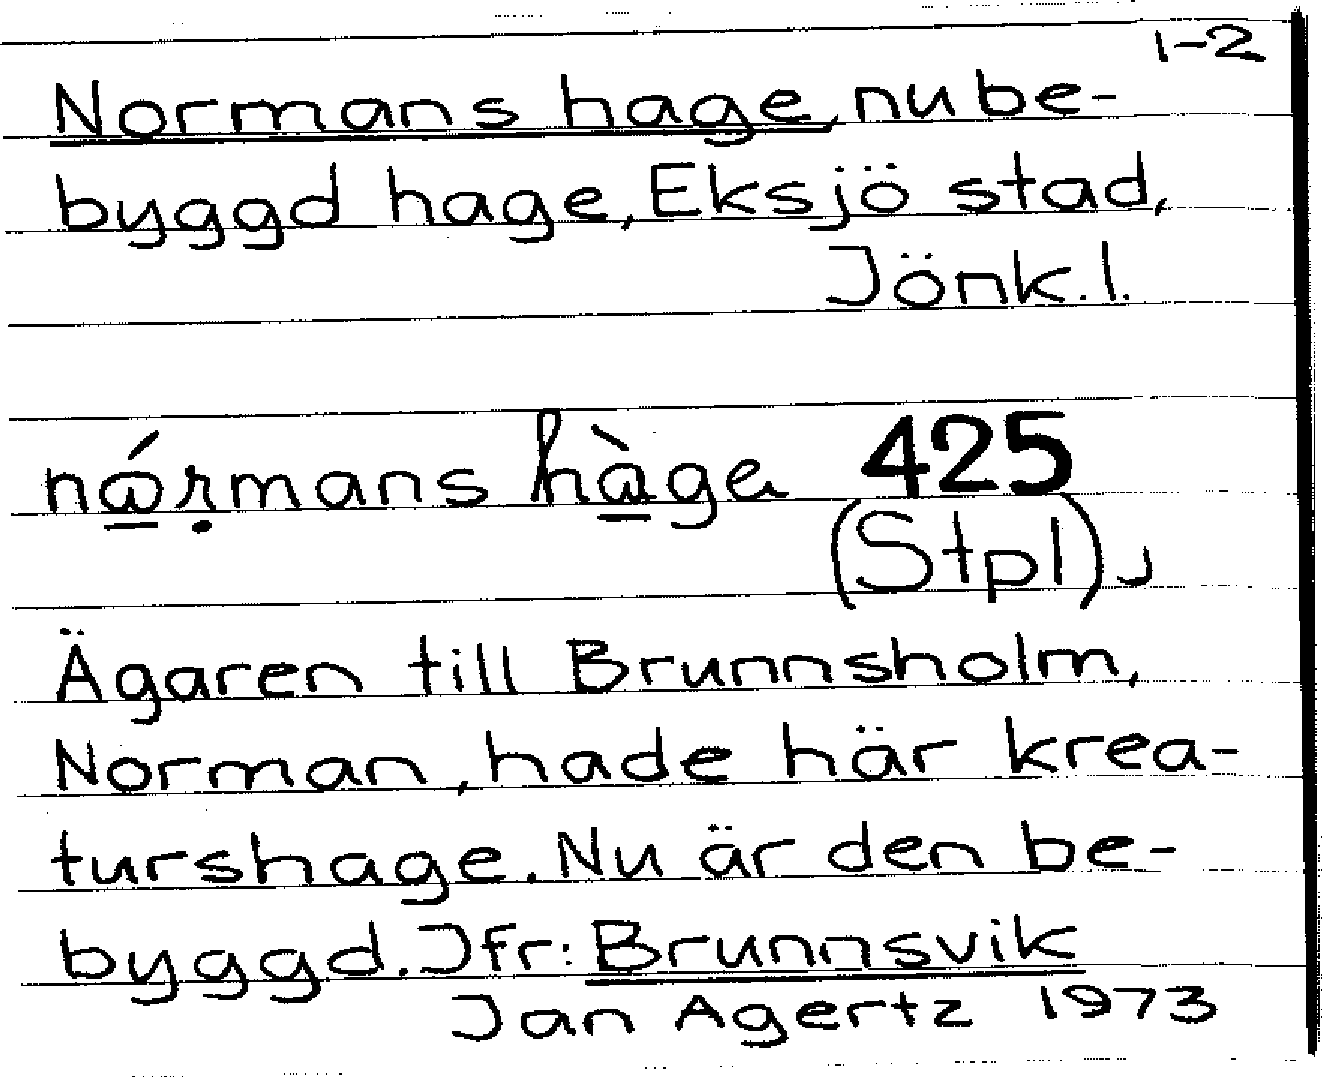 1-2
Normans hage, nu be-
byggd hage, Eksjö stad,
Jönk.l.
nǻṛmans hàga 425
(Stpl),
Ägaren till Brunnsholm,
Norman, hade här krea-
turshage. Nu är den be-
byggd. Jfr: Brunnsvik
Jan Agertz 1973